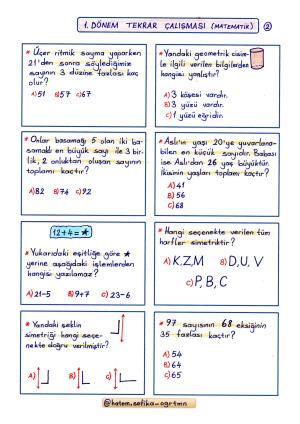 1. DÖNEM TEKRAR ÇALIŞMASI (MATEMATİK)
2
* Üçer ritmik sayma yaparken
21'den sonra söylediğimiz
sayının 3 düzine fazlası kaç
olur?
A) 51 B) 57 C) 67
* Yandaki geometrik cisim-
le ilgili verilen bilgilerden
hangisi yanlıştır?
A) 3 köşesi vardır.
B) 3 yüzü vardır.
C) 1 yüzü eğridir.
* Onlar basamağı 5 olan iki ba-
samaklı en büyük sayı ile 3 bir-
lik, 2 onluktan oluşan sayının
toplamı kaçtır?
A) 82 B) 74 C) 92
Aslı'nın yaşı 20'ye yuvarlana-
bilen en küçük sayıdır. Babası
ise Aslı'dan 26 yaş büyüktür.
İkisinin yaşları toplamı kaçtır?
A) 41
B) 56
C) 68
12+4=*
* Yukarıdaki eşitliğe göre *
yerine aşağıdaki işlemlerden
hangisi yazılamaz?
A) 21-5 B) 9+7 C) 23-6
* Hangi seçenekte verilen tüm
harfler simetriktir?
A) K, Z, M B) D, U, V
C) P, B, C
* Yandaki şeklin
simetriği hangi seçe-
nekte doğru verilmiştir?
A) B) C)
* 97 sayısının 68 eksiğinin
35 fazlası kaçtır?
A) 54
B) 64
C) 65
@hatem.sefika-ogrtmn